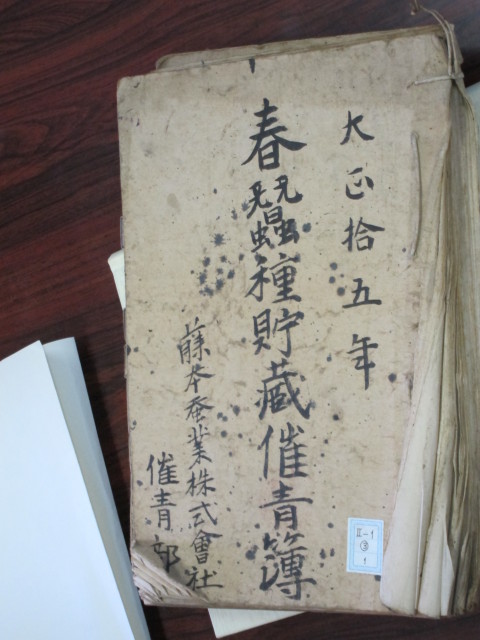 大正拾五年
春蠶種貯藏催青簿
藤本蚕業株式會社
催青部
II-1
③
1